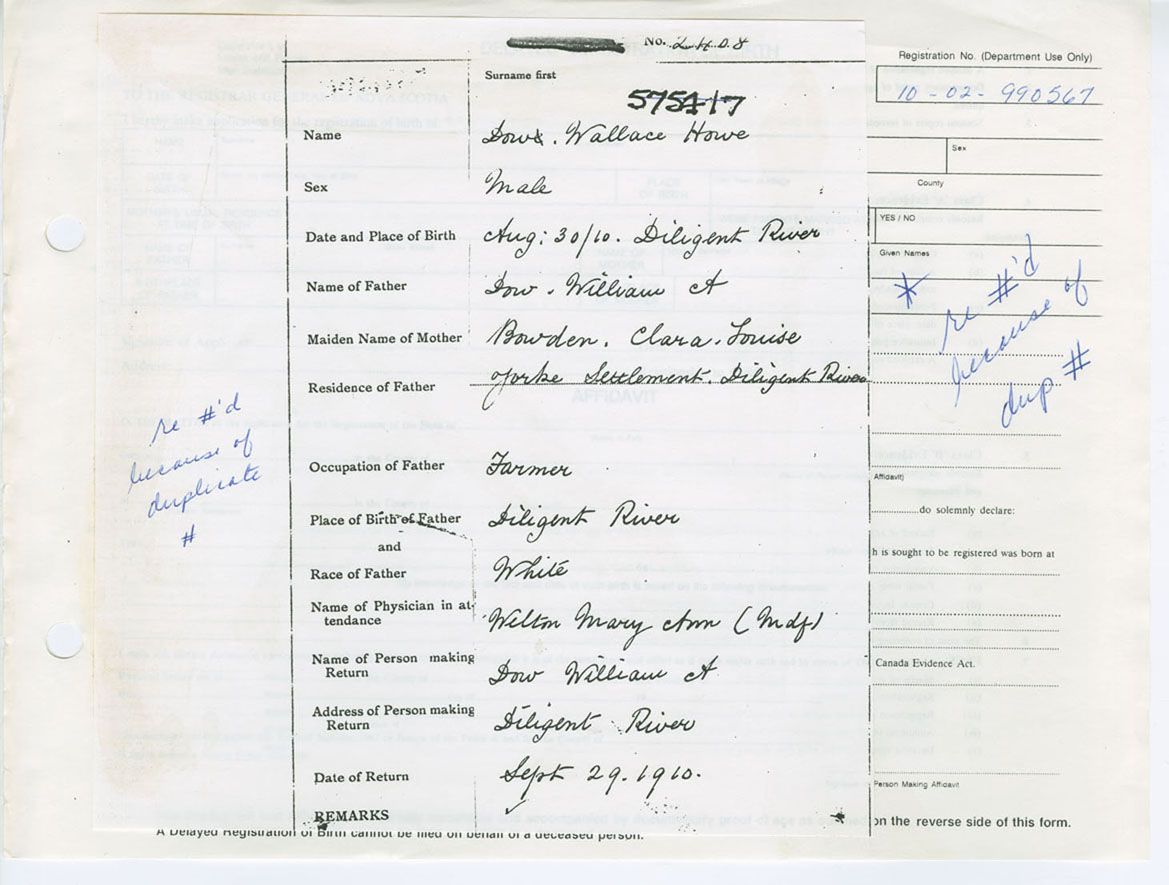 No. 2408
Registration No. (Department Use Only)
Surname first
10-02-990567
575417
Name Dow. Wallace Howe
Sex
Sex Male
County
YES / NO
Date and Place of Birth Aug: 30/10. Diligent River
Given Names
Name of Father Dow. William A
* re #'d
because of
dup #
Maiden Name of Mother Bowden. Clara. Louise
Residence of Father Yorke Settlement. Diligent River
re #'d
because of
duplicate
#
Occupation of Father Farmer
Affidavit)
Place of Birth of Father Diligent River
do solemnly declare:
and
h is sought to be registered was born at
Race of Father White
Name of Physician in at-
tendance Welton Mary Ann (Mdf)
Name of Person making
Return Dow William A
Canada Evidence Act.
Address of Person making
Return Diligent River
Date of Return Sept 29. 1910.
Person Making Affidavit
REMARKS
on the reverse side of this form.
A Delayed Registration of Birth cannot be filed on behalf of a deceased person.